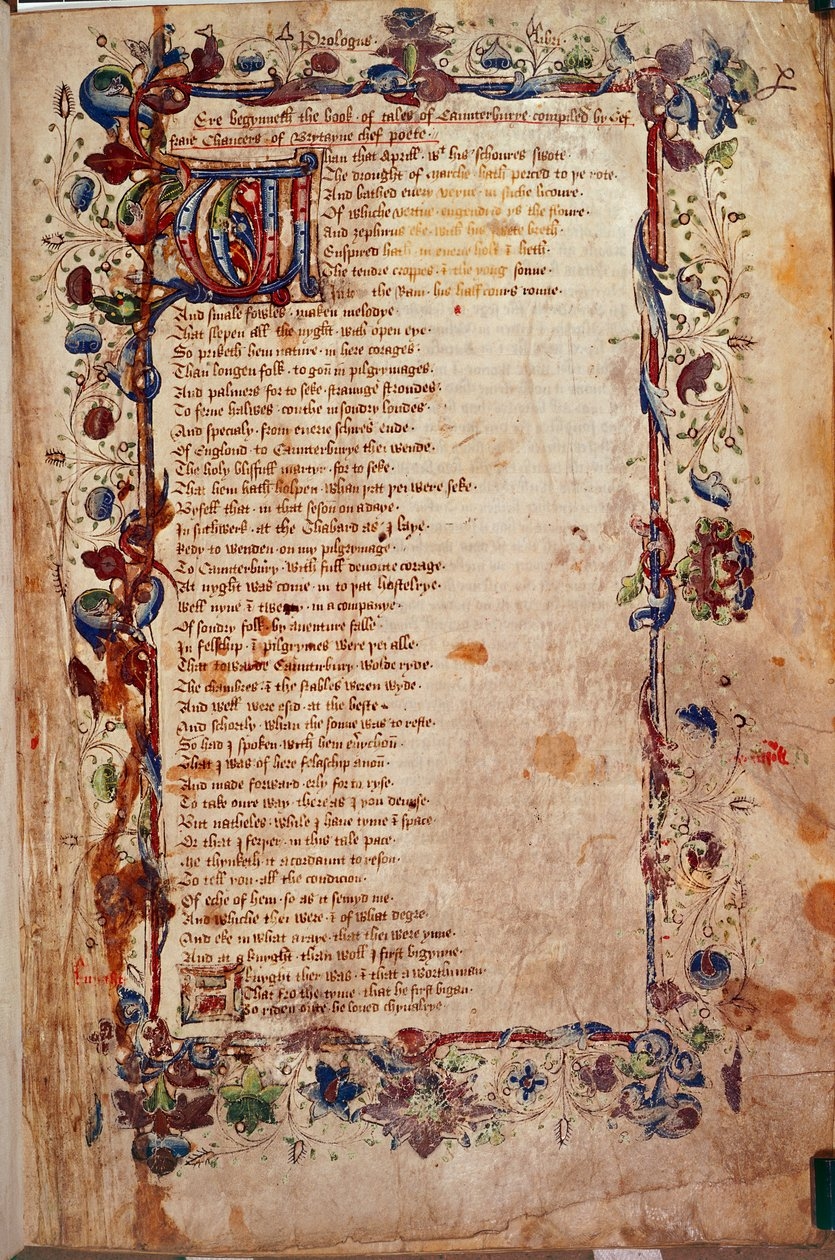 Prologus. libri.
Ere begynneth the book · of tales · of Caunterburye compiled by Gef
fraie Chaucers · of Brytayne chef poete ·
Whan that Aprill · wt his schoures swote ·
The drought of marche hath perced to ye rote ·
And bathed euery veyne · in siche licoure ·
Of whiche vertue · engendrid ys the floure ·
And zephirus eke · with his swete breth ·
Enspired hath · in euerie holt ī heth ·
The tendre croppes · ī the yong sonne ·
Into the Ram · his half cours ronne ·
And smale fowles · maken melodye ·
That slepen all the nyght · with open eye ·
So priketh hem nature · in here corages ·
Than longen folk · to gon̄ in pilgrymages ·
And palmers for to seke · straunge strondes ·
To ferne halwes · couthe in sondry londes ·
And specialy · from euerie schires ende ·
Of Englond · to Caunterburye thei wende ·
The holy blisfull martyr · for to seke ·
That hem hath holpen · whan þat þei were seke ·
Byfell that · in that seson on a daye ·
In suthwerk · at the Thabard as j laye ·
Redy to wenden · on my pilgrymage ·
To Caunterbury · with full deuoute corage ·
At nyght was come · in to þat hostelrye ·
Well nyne · ī twenty · in a companye ·
Of sondry folk · by auenture falle
In felschip · ī pilgrymes were þei alle ·
That towarde Caunterbury · wolde ryde ·
The chambres · ī the stables weren wyde ·
And well were esid · at the beste ·
And schortly · whan the sonne was to reste ·
So had j spoken · with hem euychon̄ ·
That j was of here felaschip anon̄ ·
And made forward · erly for to ryse ·
To take oure way · there as j you deuyse ·
But natheles · while j haue tyme ī space ·
Or that j ferþer · in this tale pace ·
Me thynketh it acordaunt to reson ·
To tell you · all the condicion ·
Of eche of hem · so as it semyd me ·
And whiche thei were · ī of what degre ·
And eke in what araye · that thei were ynne ·
And at a knyght · than woll j first bigynne ·
knyght
A knyght ther was · ī that a worthi man ·
That fro the tyme · that he first bigan ·
To riden oute · he loued chyualrye ·